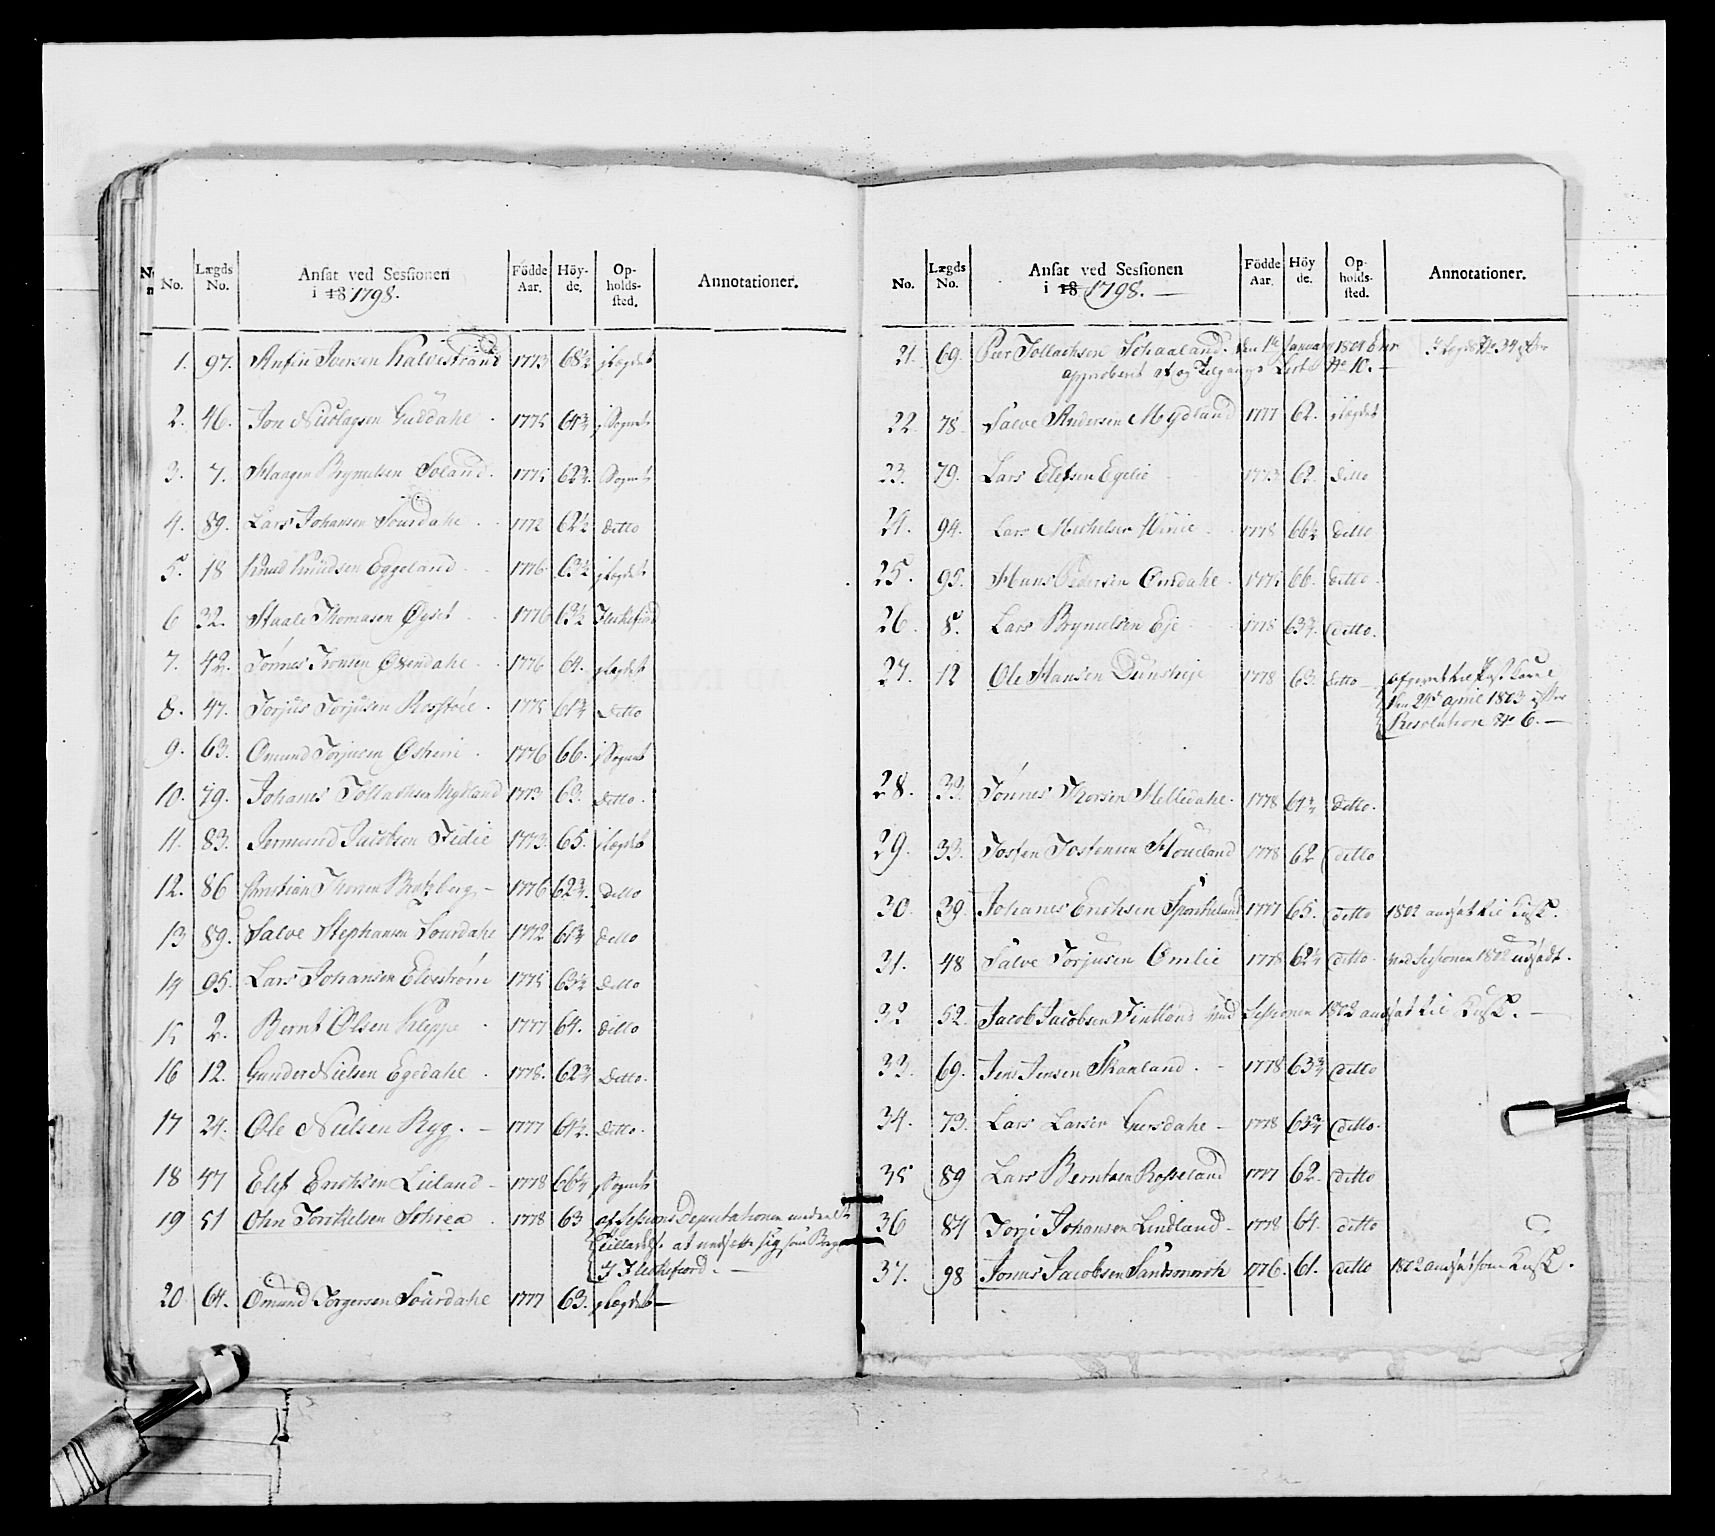 No. Lægds No. Ansat ved Sessionen i 18 1798. Födde Aar. Höy-de. Op-holds-sted. Annotationer.
1. 97. Anfin Iversen Kalvestrand 1773 68½ i Lægdet
2. 46. Jon Nicolaysen Guddahl 1775 i Sognet
3. 7. Haagen Brynielsen Soland. 1775 Sognet
4. 89. Lars Johansen Sourdahl 1772 62½ ditto
5. 18 Knud Knudsen Eggeland 1776 63½ i Lægdet
6 32. Staale Thomasen Øyset 1776 63½ Flekkefiord
7. 42. Tønnes Tronsen Øxendahl 1776 64. i Lægdet
8. 47. Torjus Torjusen Rosstøl 1775 Ditto
9. 63. Omund Torjusen 1776 66. i Sognet
10. 79. Johanes Tollachsen Mydland 1773 63. Ditto.
11. 83. Jermund Jacobsen Fidie 1773. 65. i Lægdet
12. 86 Christian Thorsen Bratzberg 1776 62¾. Ditto
13 89. Salve Stephansen Sourdahl 1772 61¾ Ditto
14 95. Lars Johansen Elvestrøm 1775 Ditto
15 2. Bernt Olsen Kleppe 1777 64. Ditto
16 12. Gunder Nielsen Egedahl 1778. 62¾ Ditto.
17 24. Ole Nielsen Ryg. 1777 64½. Ditto.
18 47 Elef Erichsen Lieland 1778 i Sognet
19 51 Ohn Torkildsen Schrea 1778 63 af Sessions Deputationen meddeelt
Tilladelse at nedsætte sig som Borger
I Flekkefiord.
20 64. Omund Torgersen Sourdahl 1777 63. i Lægdet
No. Lægds No. Ansat ved Sessionen i 18 1798. Födde Aar. Höy de. Op-holds-sted. Annotationer.
21. 69. Peer Tollachsen Schaaland. den 1te Januarij 1801 No 34
approberet Liste No 10.
22. 78. Salve Andersen Mydland 1777 62. i Lægdet
23. 79. Lars Elefsen Egelie 1773 62. Ditto
24. 94. Lars Michelsen 1778 66½ Ditto
25. 95. Hans Pedersen Omdahl 1775 66. Ditto.
26. 8. Lars Brynielsen Eje 1778 63¾. Ditto.
27. 12 Ole Hansen 1778 63. Ditto
den 24de April 1803 efter
Resolution No 6.
28. 33. Tønnes Thorsen Helledahl. 1778 61¾ Ditto.
29. 33. Josten Jostensen Houeland 1778 62 Ditto
30. 39. Johanes Erichsen 1777 65. Ditto 1802 ansat til Kusk.
31. 48 Salve Torjusen Omlie 1778 Ditto ved Sessionen 1802 udsødt.
32 52. Jacob Jacobsen Fintland ved Sessionen 1802 ansat til Kusk.
33. 69. Jens Jensen Skanland. 1778 63¾ Ditto
34. 73. Lars Larsen 1778 63¾ Ditto.
35 89 Lars Berntsen Rosseland 1777 62. Ditto
36 84 Torje Johansen Lindland 1778 64. Ditto
37. 98 Jonas Jacobsen 1776. 61. Ditto 1802 ansat som Kusk.